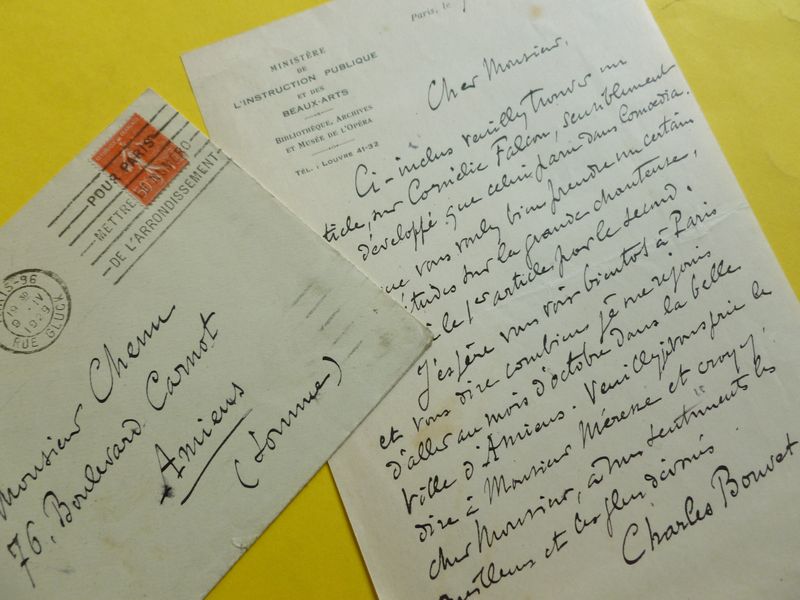 Paris, le
MINISTÈRE
DE
L'INSTRUCTION PUBLIQUE
ET DES
BEAUX-ARTS
BIBLIOTHÈQUE, ARCHIVES
ET MUSÉE DE L'OPÉRA
TÉL. : LOUVRE 41-32
Cher Monsieur,
Ci-inclus veuillez trouver un
ticle, sur Cornélie Falcon, sensiblement
développé que celui paru dans Comoedia.
que vous voulez bien prendre un certain
études sur la grande chanteuse,
le 1er article par le second.
J'espère vous voir bientôt à Paris
et vous dire combien je me réjouis
d'aller au mois d'octobre dans la belle
ville d'Amiens. Veuillez, je vous prie le
dire à Monsieur et croyez,
cher Monsieur, à mes sentiments les
meilleurs et les plus dévoués
Charles Bouvet
POUR PARIS
METTRE LE NUMÉRO
DE L'ARRONDISSEMENT
PARIS-96
RUE GLUCK
Monsieur Chenu
76, Boulevard Carnot
Amiens
(Somme)